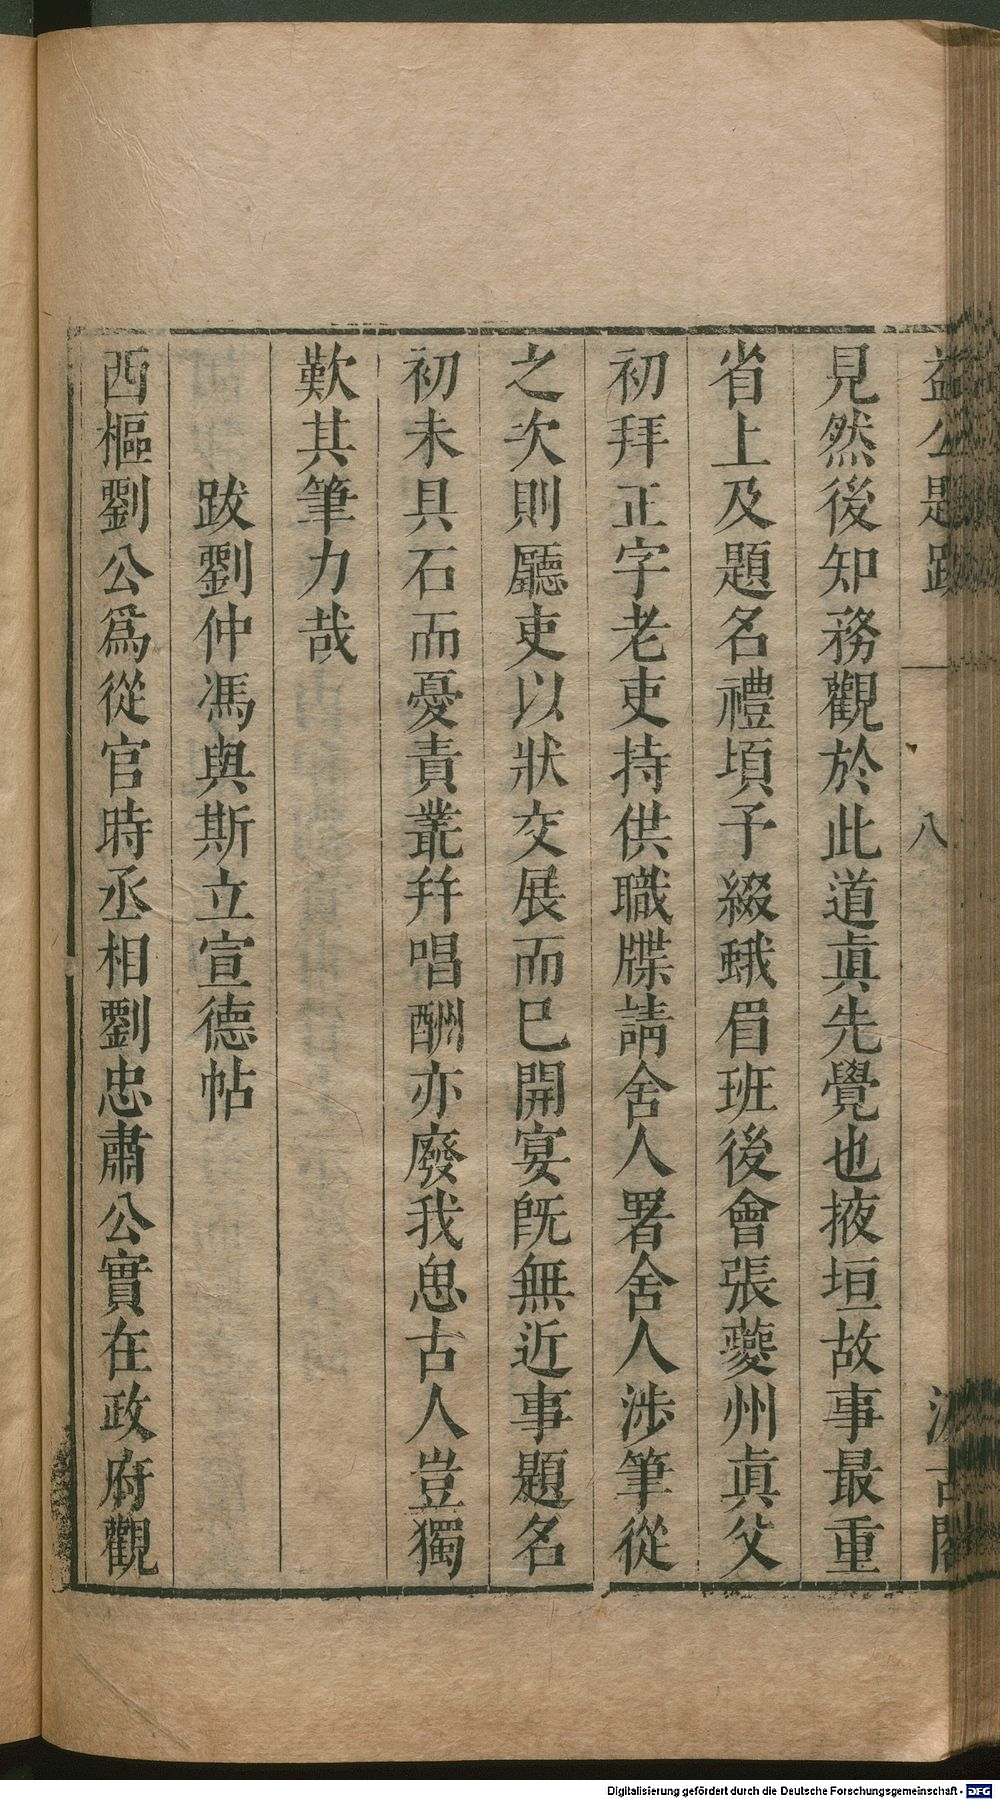 益公題跋 八 汲古閣
見然後知務觀於此道眞先覺也掖垣故事最重
省上及題名禮頃予綴蛾眉班後會張夔州眞父
初拜正字老吏持供職牒請舍人署舍人涉筆從
之次則廳吏以狀交展而已開宴旣無近事題名
初未具石而憂責叢幷唱酬亦廢我思古人豈獨
歎其筆力哉
跋劉仲馮與斯立宣德帖
西樞劉公爲從官時丞相劉忠肅公實在政府觀
Digitalisierung gefördert durch die Deutsche Forschungsgemeinschaft - DFG